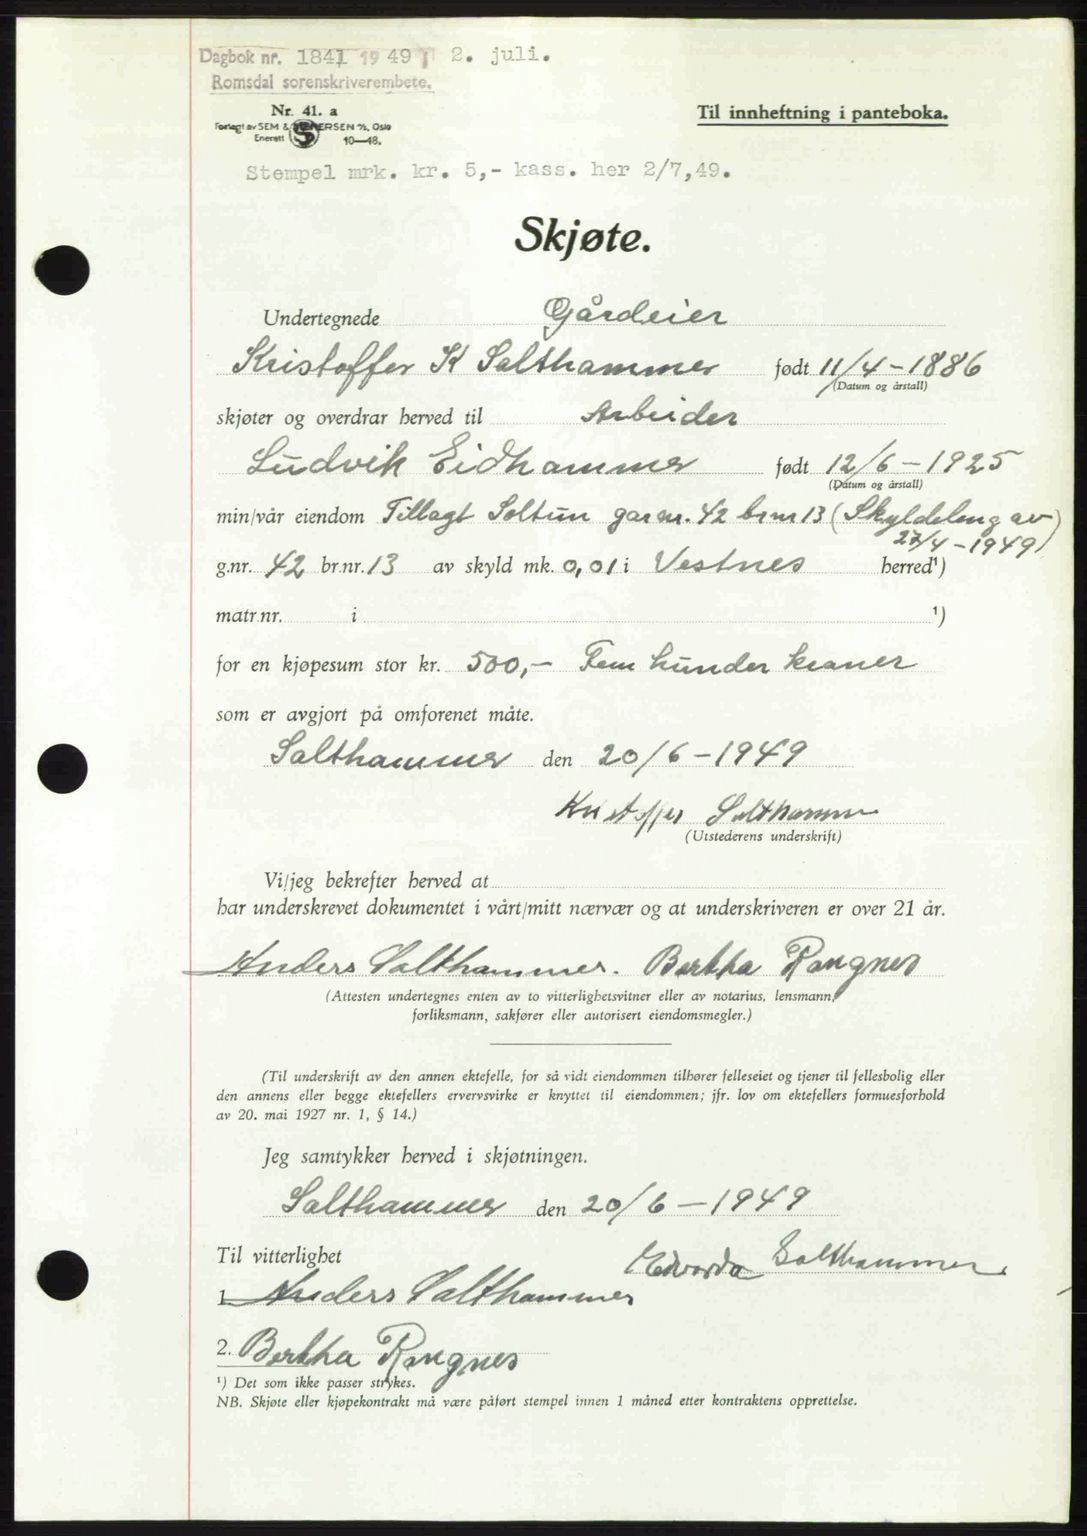 Dagbok nr. 1841 1949 2. juli.
Romsdal sorenskriverembete.
Nr. 41. a
Til innheftning i panteboka.
Forlagt av SEM & STENERSEN A/S, Oslo
Enerett 10—48.
Stempel mrk. kr. 5,- kass. her 2/7,49.
Skjøte.
Undertegnede Gårdeier
Kristoffer K Salthammer født 11/4-1886
(Datum og årstall)
skjøter og overdrar herved til Arbeider
Ludvik Eidhammer født 12/6-1925
(Datum og årstall)
min/vår eiendom Tillagt Soltun garnr. 42 brnr 13 (Skyldeling av
27/4-1949)
g.nr. 42 br.nr. 13 av skyld mk. 0,01 i Vestnes herred¹)
matr.nr. i ¹)
for en kjøpesum stor kr. 500,- Fem hunder kroner
som er avgjort på omforenet måte.
Salthammer den 20/6-1949
Kristoffer Salthammer
(Utstederens underskrift)
Vi/jeg bekrefter herved at
har underskrevet dokumentet i vårt/mitt nærvær og at underskriveren er over 21 år.
Anders Salthammer. Bertha Rangnes
(Attesten undertegnes enten av to vitterlighetsvitner eller av notarius, lensmann,
forliksmann, sakfører eller autorisert eiendomsmegler.)
(Til underskrift av den annen ektefelle, for så vidt eiendommen tilhører felleseiet og tjener til fellesbolig eller
den annens eller begge ektefellers ervervsvirke er knyttet til eiendommen; jfr. lov om ektefellers formuesforhold
av 20. mai 1927 nr. 1, § 14.)
Jeg samtykker herved i skjøtningen.
Salthammer den 20/6-1949
Til vitterlighet
Edvarda Salthammer
1. Anders Salthammer
2. Bertha Rangnes
¹) Det som ikke passer strykes.
NB. Skjøte eller kjøpekontrakt må være påført stempel innen 1 måned etter kontraktens opprettelse.